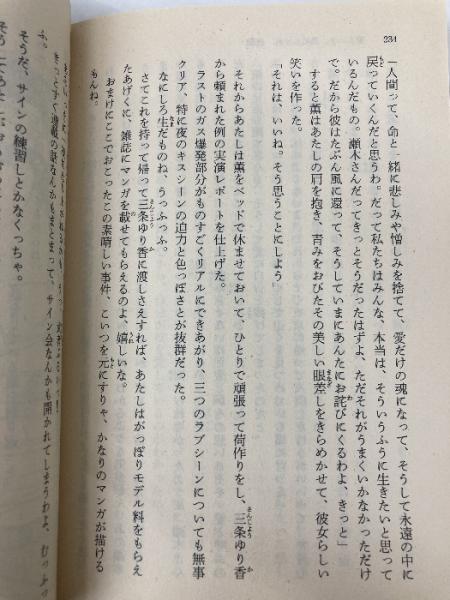 234
「人間って、命と一緒に悲しみや憎しみを捨てて、愛だけの魂になって、そうして永遠の中に
戻っていくんだと思うわ。だって私たちはみんな、本当は、そういうふうに生きたいと思って
いるんだもの。瀬木さんだってきっとそうだったはずよ、ただそれがうまくいかなかっただけ
で。だから彼はたぶん風に還って、そうしていまにあんたにお詫びにくるわよ、きっと」
すると薫はあたしの肩を抱き、青みをおびたその美しい眼差しをきらめかせて、彼女らしい
笑いを作った。
「それは、いいね。そう思うことにしよう」
それからあたしは薫をベッドで休ませておいて、ひとりで頑張って荷作りをし、三条ゆり香
から頼まれた例の実演レポートを仕上げた。
ラストのガス爆発部分がものすごくリアルにできあがり、三つのラブシーンについても無事
クリア、特に夜のキスシーンの迫力と色っぽさとが抜群だった。
なにしろ生だものね、うっふっふ。
さてこれを持って帰って三条ゆり香に渡しさえすれば、あたしはがっぽりモデル料をもらえ
たあげくに、雑誌にマンガを載せてもらえるのよ、嬉しいな。
おまけにここでおこったこの素晴しい事件、こいつを元にすりゃ、かなりのマンガが描ける
もんね。
きっとすぐ連載の話なんかもまとまって、サイン会なんかも開かれてしまうわよ、むっふっ
ふ。
そうだ、サインの練習しとかなくっちゃ。